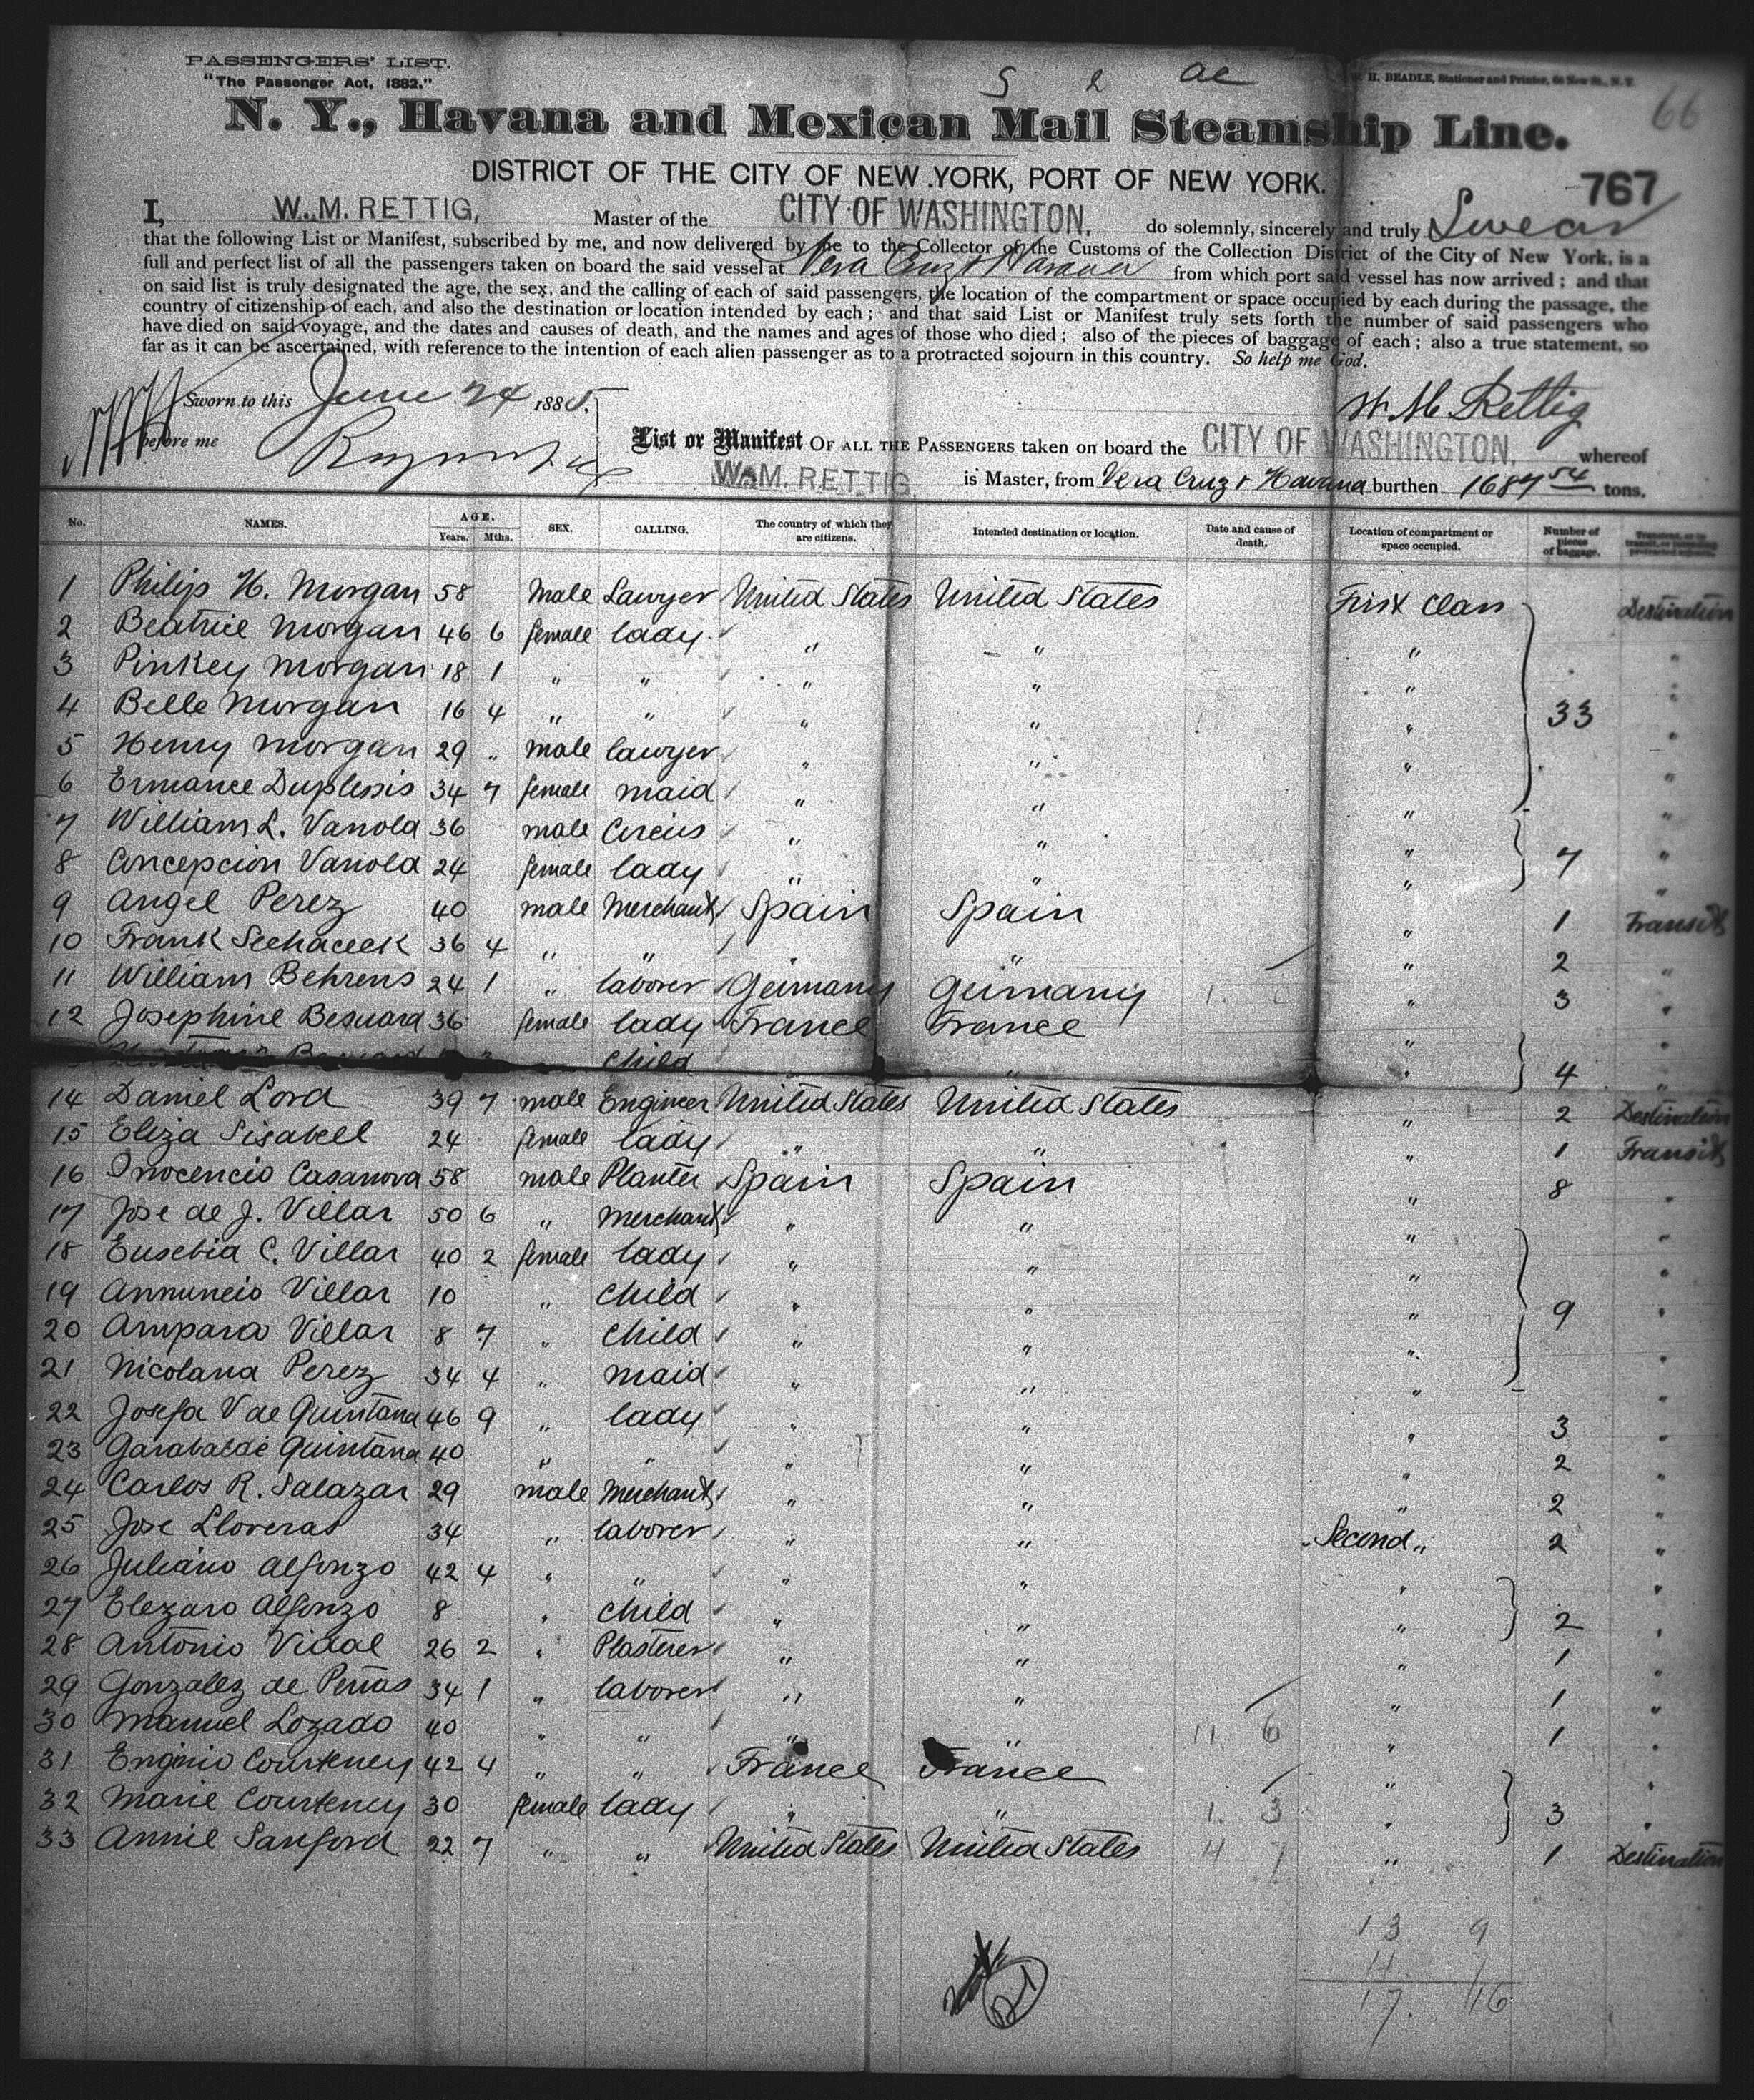 PASSENGERS' LIST.
"The Passenger Act, 1882."
S 2 ae
H. BEADLE, Stationer and Printer, 64 New St., N. Y.
66
N. Y., Havana and Mexican Mail Steamship Line.
DISTRICT OF THE CITY OF NEW YORK, PORT OF NEW YORK.
767
I, W. M. RETTIG, Master of the CITY OF WASHINGTON, do solemnly, sincerely and truly Swear
that the following List or Manifest, subscribed by me, and now delivered by me to the Collector of the Customs of the Collection District of the City of New York, is a
full and perfect list of all the passengers taken on board the said vessel at Vera Cruz & Havana from which port said vessel has now arrived; and that
on said list is truly designated the age, the sex, and the calling of each of said passengers, the location of the compartment or space occupied by each during the passage, the
country of citizenship of each, and also the destination or location intended by each; and that said List or Manifest truly sets forth the number of said passengers who
have died on said voyage, and the dates and causes of death, and the names and ages of those who died; also of the pieces of baggage of each; also a true statement, so
far as it can be ascertained, with reference to the intention of each alien passenger as to a protracted sojourn in this country. So help me God.
Sworn to this June 24 1885.
W M Rettig
before me
List or Manifest OF ALL THE PASSENGERS taken on board the CITY OF WASHINGTON, whereof
W. M. RETTIG is Master, from Vera Cruz & Havana burthen 1687 54 tons.
No. NAMES. AGE. Years. Mths. SEX. CALLING. The country of which they are citizens. Intended destination or location. Date and cause of death. Location of compartment or space occupied. Number of pieces of baggage.
1 Philip H. Morgan 58 Male Lawyer United States United States First Class Destination
2 Beatrice Morgan 46 6 female lady " " " "
3 Pinkey Morgan 18 1 " " " " " "
4 Belle Morgan 16 4 " " " " " 33 "
5 Henry Morgan 29 " male lawyer " " " "
6 Ermance Duplessis 34 7 female maid " " " "
7 William L. Vanola 36 male Circus " " " "
8 Concepcion Vanola 24 female lady " " " 7 "
9 Angel Perez 40 male Merchant Spain Spain " 1 Transit
10 Frank Seehaceek 36 4 " " " " " 2 "
11 William Behrens 24 1 " laborer Germany Germany " 3 "
12 Josephine Besuard 36 female lady France France " "
child " " 4 "
14 Daniel Lord 39 7 male Engineer United States United States " 2 Destination
15 Eliza Sisabell 24 female lady " " " 1 Transit
16 Inocencio Casanova 58 male Planter Spain Spain " 8 "
17 Jose de J. Villar 50 6 " Merchant " " " "
18 Eusebia C. Villar 40 2 female lady " " " "
19 Annuncio Villar 10 " child " " " 9 "
20 Ampara Villar 8 7 " child " " " "
21 Nicolana Perez 34 4 " maid " " " "
22 Josefa V de Quintana 46 9 " lady " " " 3 "
23 Garabalde Quintana 40 " " " " " 2 "
24 Carlos R. Salazar 29 male Merchant " " " 2 "
25 Jose Lloveras 34 " laborer " " Second " 2 "
26 Juliano Alfonzo 42 4 " " " " " "
27 Elezaro Alfonzo 8 " child " " " 2 "
28 Antonio Vidal 26 2 " Plasterer " " " 1 "
29 Gonzalez de Penas 34 1 " laborer " " " 1 "
30 Manuel Lozado 40 " " " " 11 6 " 1 "
31 Engenio Courteney 42 4 " " France France " "
32 Marie Courteney 30 female lady " " 1. 3 " 3 "
33 Annie Sanford 22 7 " " United States United States 4 7 " 1 Destination
13 9
4 7
17. 16